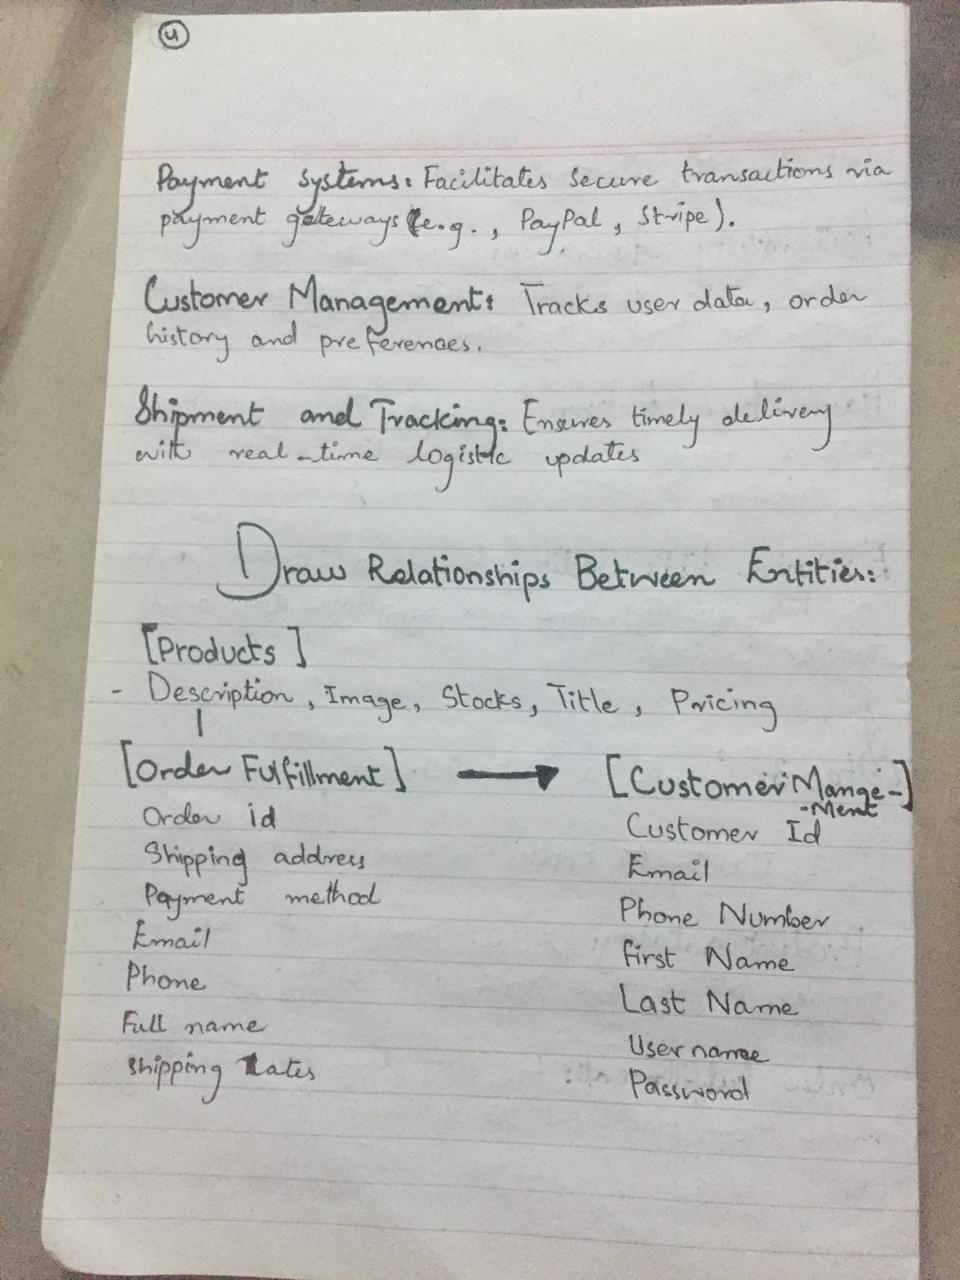 4
Payment systems: Facilitates secure transactions via
payment gateways (e.g., PayPal, Stripe).
Customer Management: Tracks user data, order
history and preferences.
Shipment and Tracking: Ensures timely delivery
with real-time logistic updates
Draw Relationships Between Entities:
[Products]
- Description, Image, Stocks, Title, Pricing
[Order Fulfillment] → [Customer Mange-]
-Ment
Order id
Shipping address
Payment method
Email
Phone
Full name
Shipping Rates
Customer Id
Email
Phone Number
First Name
Last Name
User name
Password